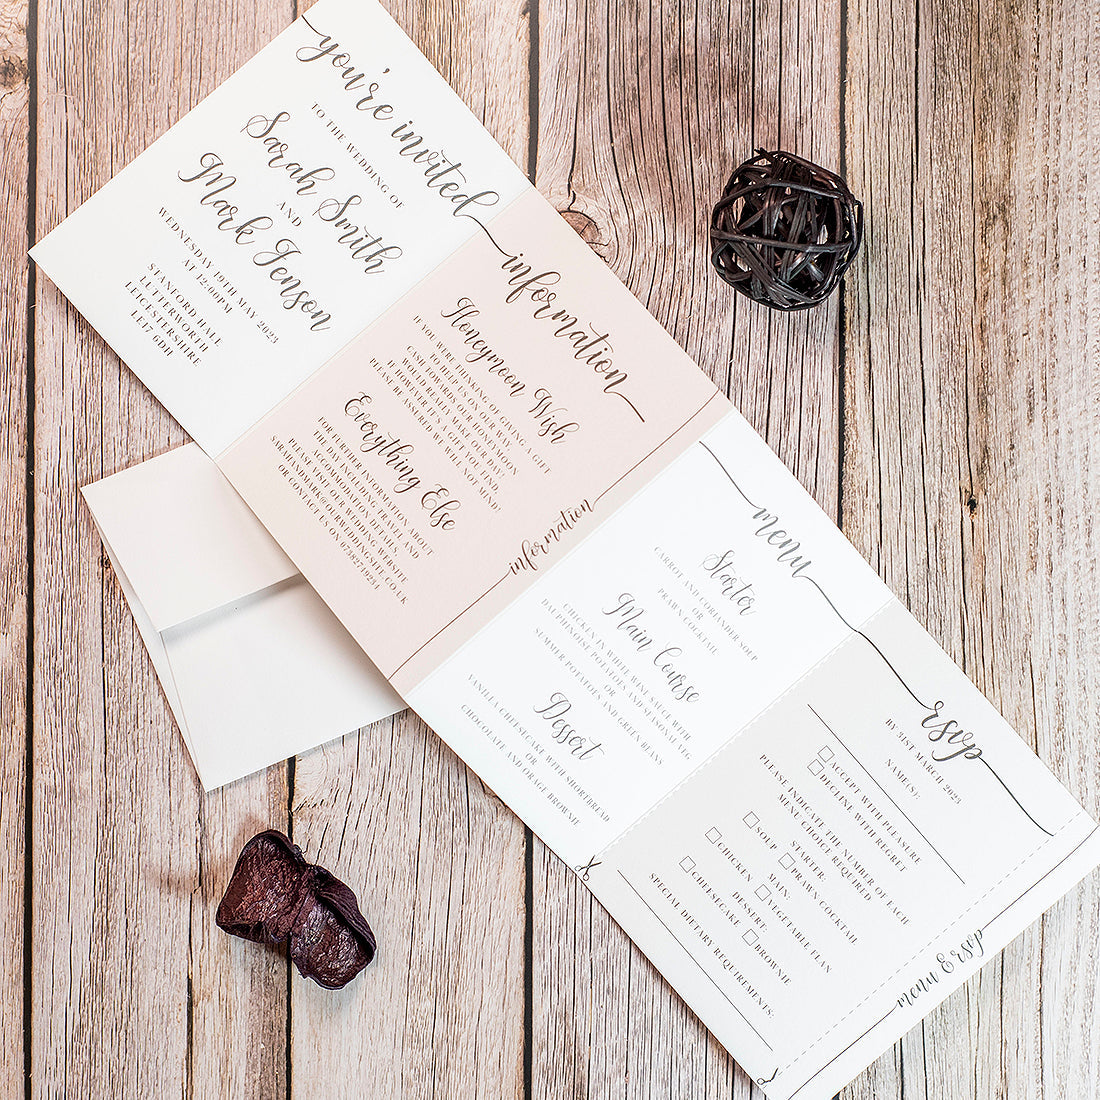 you're invited
TO THE WEDDING OF
Sarah Smith
AND
Mark Jenson
WEDNESDAY 19TH MAY 2023
AT 12:00PM
STANFORD HALL
LUTTERWORTH
LEICHSTERSHIRE
LE17 6DH
information
Honeymoon Wish
IF YOU WERE THINKING OF GIVING A GIFT
TO HELP US ON OUR WAY, A
CASH TOWARDS OUR HONEYMOON
WOULD REALLY MAKE OUR DAY!
IF HOWEVER
PLEASE BE ASSURED WE WILL NOT MIND!
Everything Else
FOR FURTHER INFORMATION ABOUT
THE DAY INCLUDING TRAVEL AND
ACCOMMODATION DETAILS,
PLEASE VISIT OUR WEDDING WEBSITE
SARAHANDMARK@OURWEDDINGSITE.CO.UK
OR CONTACT US ON
information
menu
Starter
CARROT AND CORIANDER SOUP
OR
PRAWN COCKTAIL
Main Course
CHICKEN IN WHITE WINE SAUCE WITH
DAUPHENOISE POTATOES AND SEASONAL VEG
OR
SUMMER POTATOES AND GREEN BEANS
Dessert
VANILLA CHEESECAKE WITH SHORTBREAD
OR
CHOCOLATE AND ORAGE BROWNIE
rsvp
BY 31ST MARCH 2023
NAME(S):
ACCEPT WITH PLEASURE
DECLINE WITH REGRET
PLEASE INDICATE THE NUMBER OF EACH
MENU CHOICE REQUIRED
STARTER:
SOUP PRAWN COCKTAIL
MAIN:
CHICKEN VEGETABLE FLAN
DESSERT:
CHEESECAKE BROWNIE
SPECIAL DIETARY REQUIREMENTS:
menu & rsvp